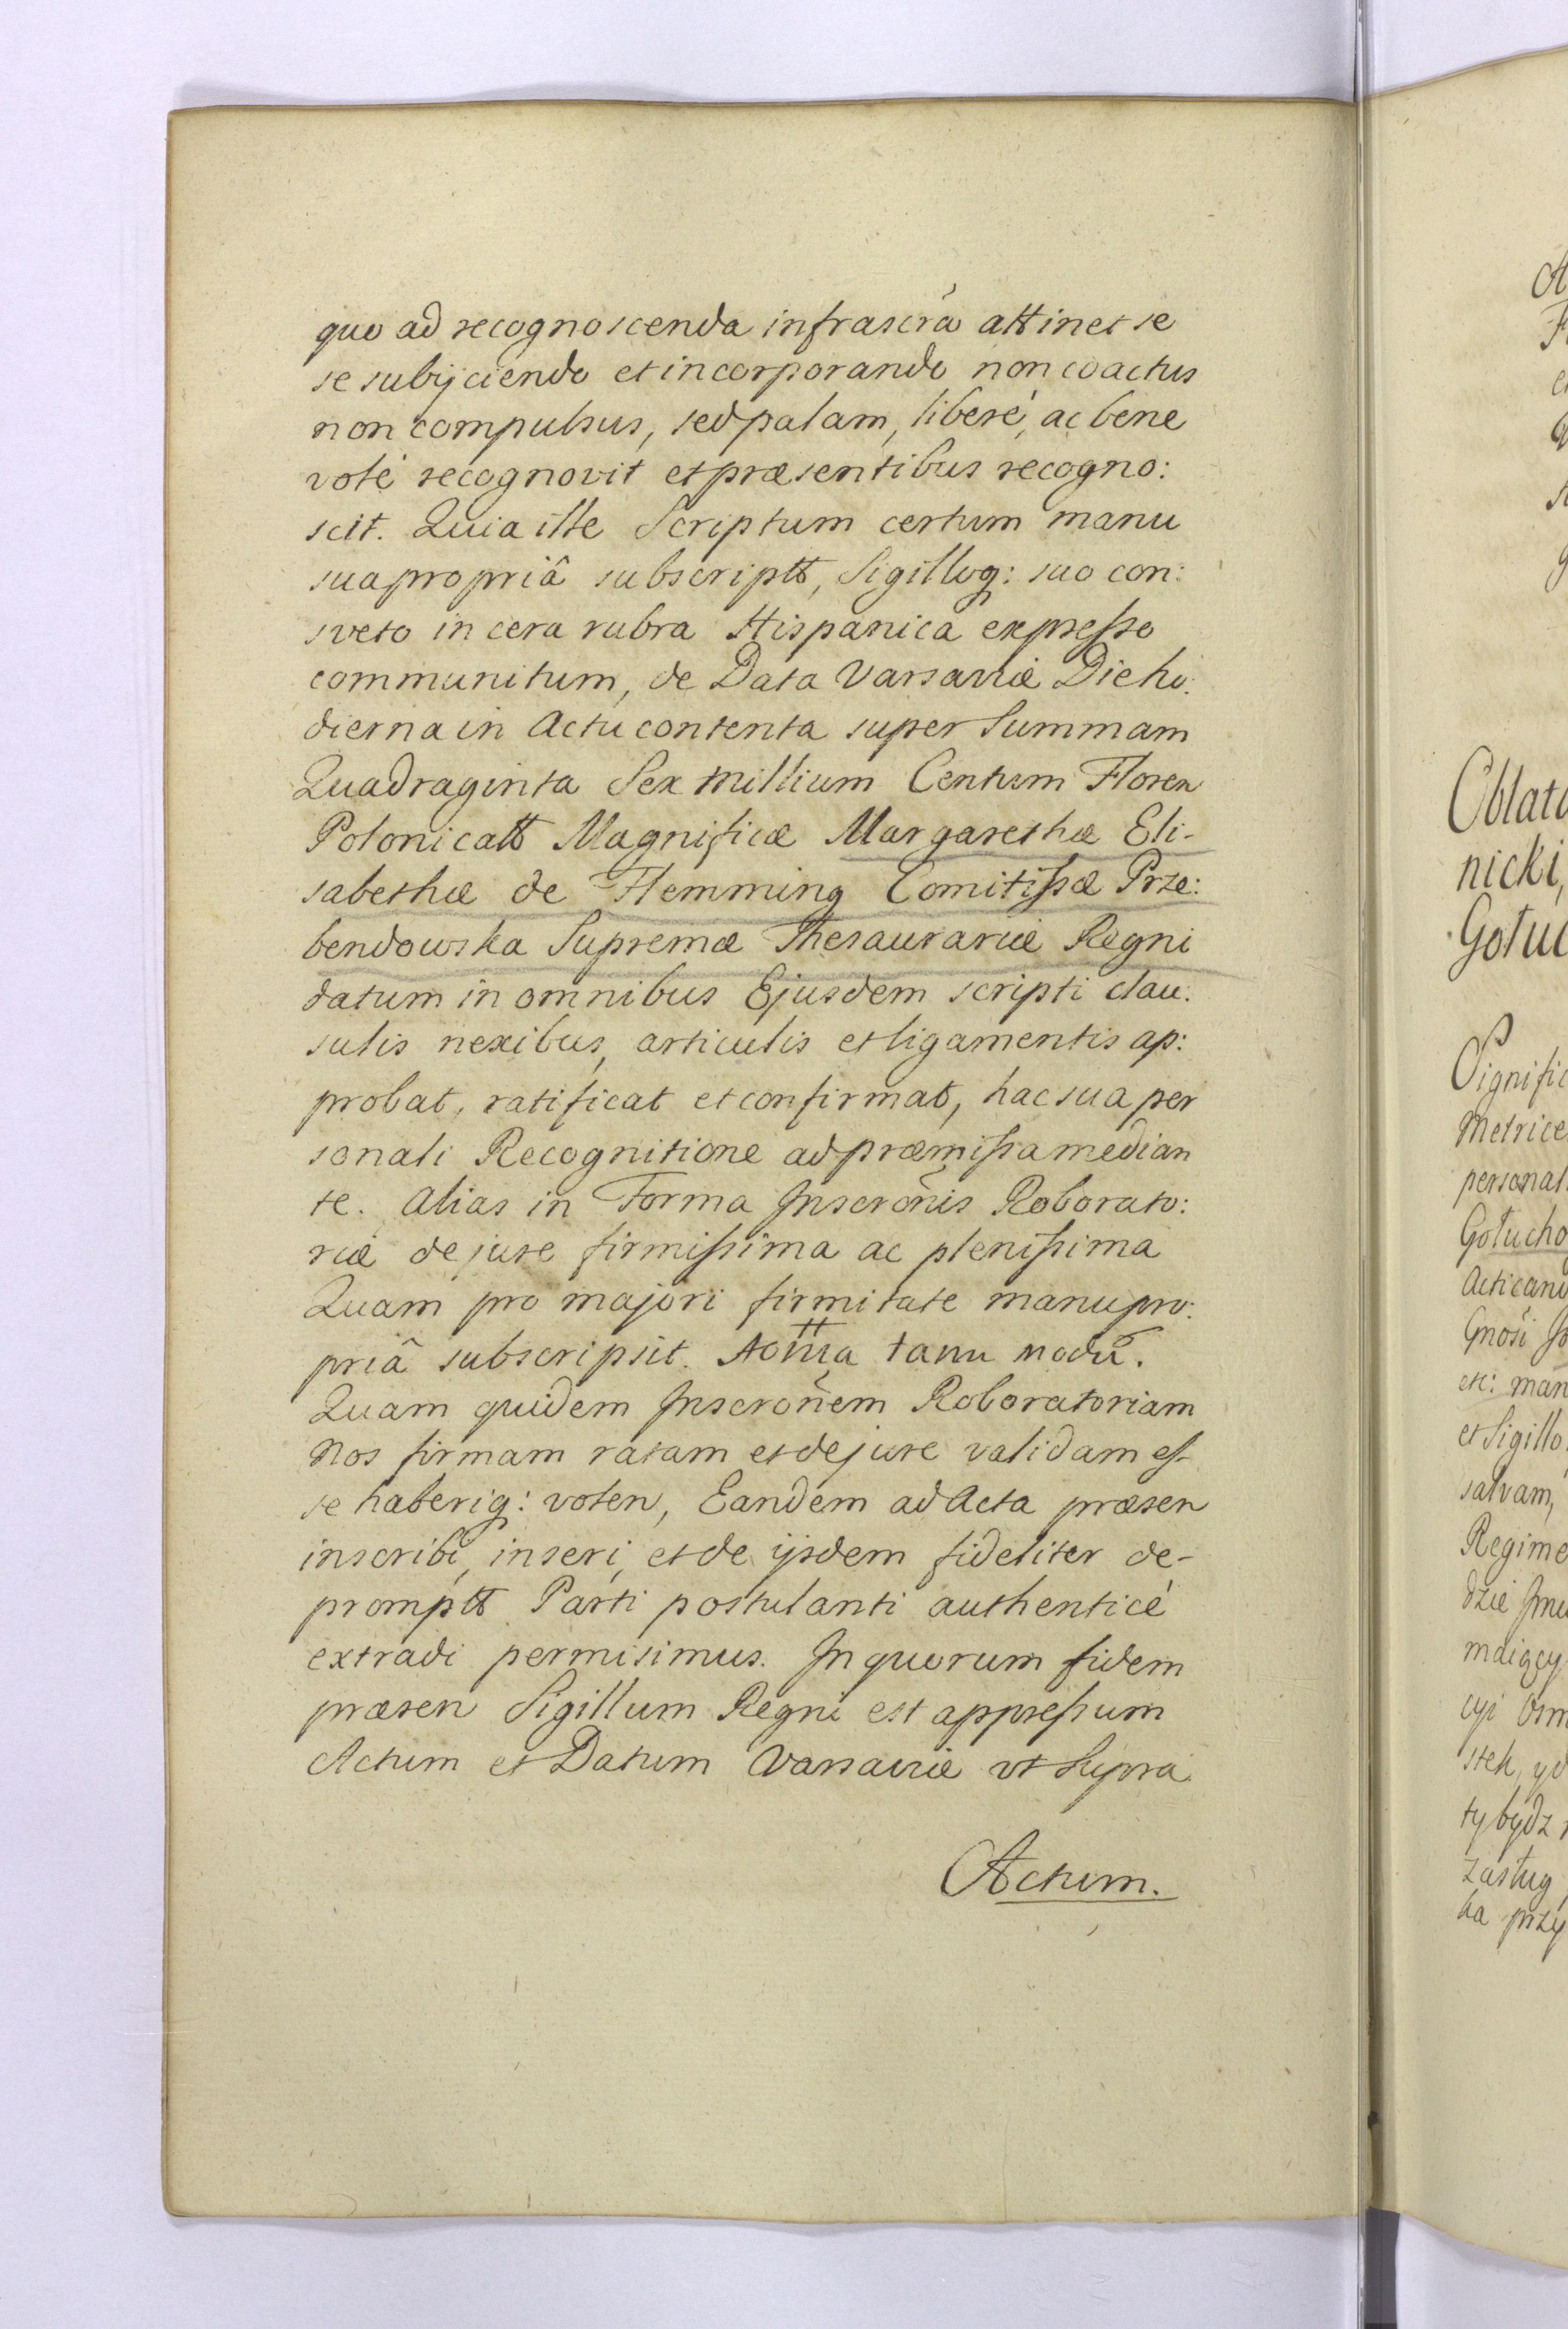 quo ad recognoscenda infrascra attinet se
se subijciendo et incorporando non coactus
non compulsus, sed palam, liberè, ac bene
volè recognovit et præsentibus recogno:
scit. Quia ille Scriptum certum manu
sua propriâ subscriptt, Sigilloq: suo con:
sveto in cera rubra Hispanica expresso
communitum, de Data Varsaviæ Die ho:
dierna in Actu contenta super Summam
Quadraginta Sex Millium Centum Floren
Polonicatt Magnificæ Margarethæ Eli-
sabethæ de Flemming Comitissæ Prze:
bendowska Supremæ Thesaurariæ Regni
datum in omnibus Ejusdem scripti clau:
sulis nexibus, articulis et ligamentis ap:
probat, ratificat et confirmat, hac sua per
sonali Recognitione ad præmissa median
te. Alias in Forma Inscrõnis Roborato:
riæ de jure firmissima ac plenissima
Quam pro majori firmitate manu pro:
priâ subscripsit. tanu modũ.
Quam quidem Inscrõnem Roboratoriam
Nos firmam ratam et de jure validam es-
se haberiq: volen, Eandem ad Acta præsen
inscribi, inseri, et de ijsdem fideliter de-
promptt Parti postulanti authenticè
extradi permisimus. In quorum fidem
præsen Sigillum Regni est appressum
Actum et Datum Varsaviæ ut Supra
Actum.
Oblata
nicki,
Gołuc
Signific
Metrice
personal
Gołucho
Acticand
Gnosi
etc: man
et Sigillo
salvam,
Regime
dzie
maiący
cyi
stek, yd
ty bydz
zasług
ka przy